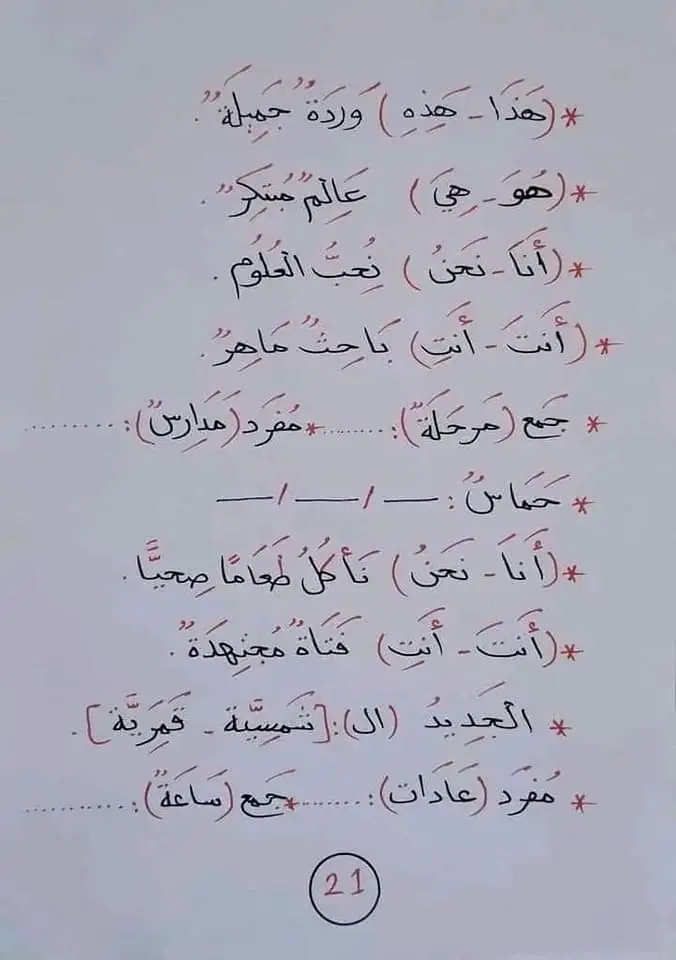 * (هَذَا - هَذِهِ) وَرْدَةٌ جَمِيلَةٌ.
* (هُوَ - هِيَ) عَالِمٌ مُبْتَكِرٌ.
* (أَنَا - نَحْنُ) نُحِبُّ الْعُلُومَ.
* (أَنْتَ - أَنْتِ) بَاحِثٌ مَاهِرٌ.
* جَمع (مَرحَلَةٌ): ........ * مُفرَد (مَدَارِسٌ): .........
* حَمَاسٌ: — / — / —
* (أَنَا - نَحنُ) نَأكُلُ طَعَامًا صِحيًّا.
* (أَنتَ - أَنتِ) فَتَاةٌ مُجتَهِدَةٌ.
* الجَدِيدُ (ال): [شَمسِيَّة - قَمَرِيَّة].
* مُفرَد (عَادَات): ........ * جَمع (سَاعَةٌ): ...........
21